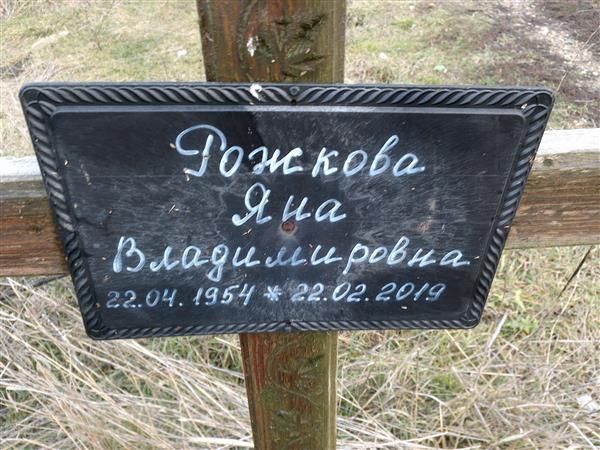 Рожкова
Яна
Владимировна
22.04.1954 * 22.02.2019